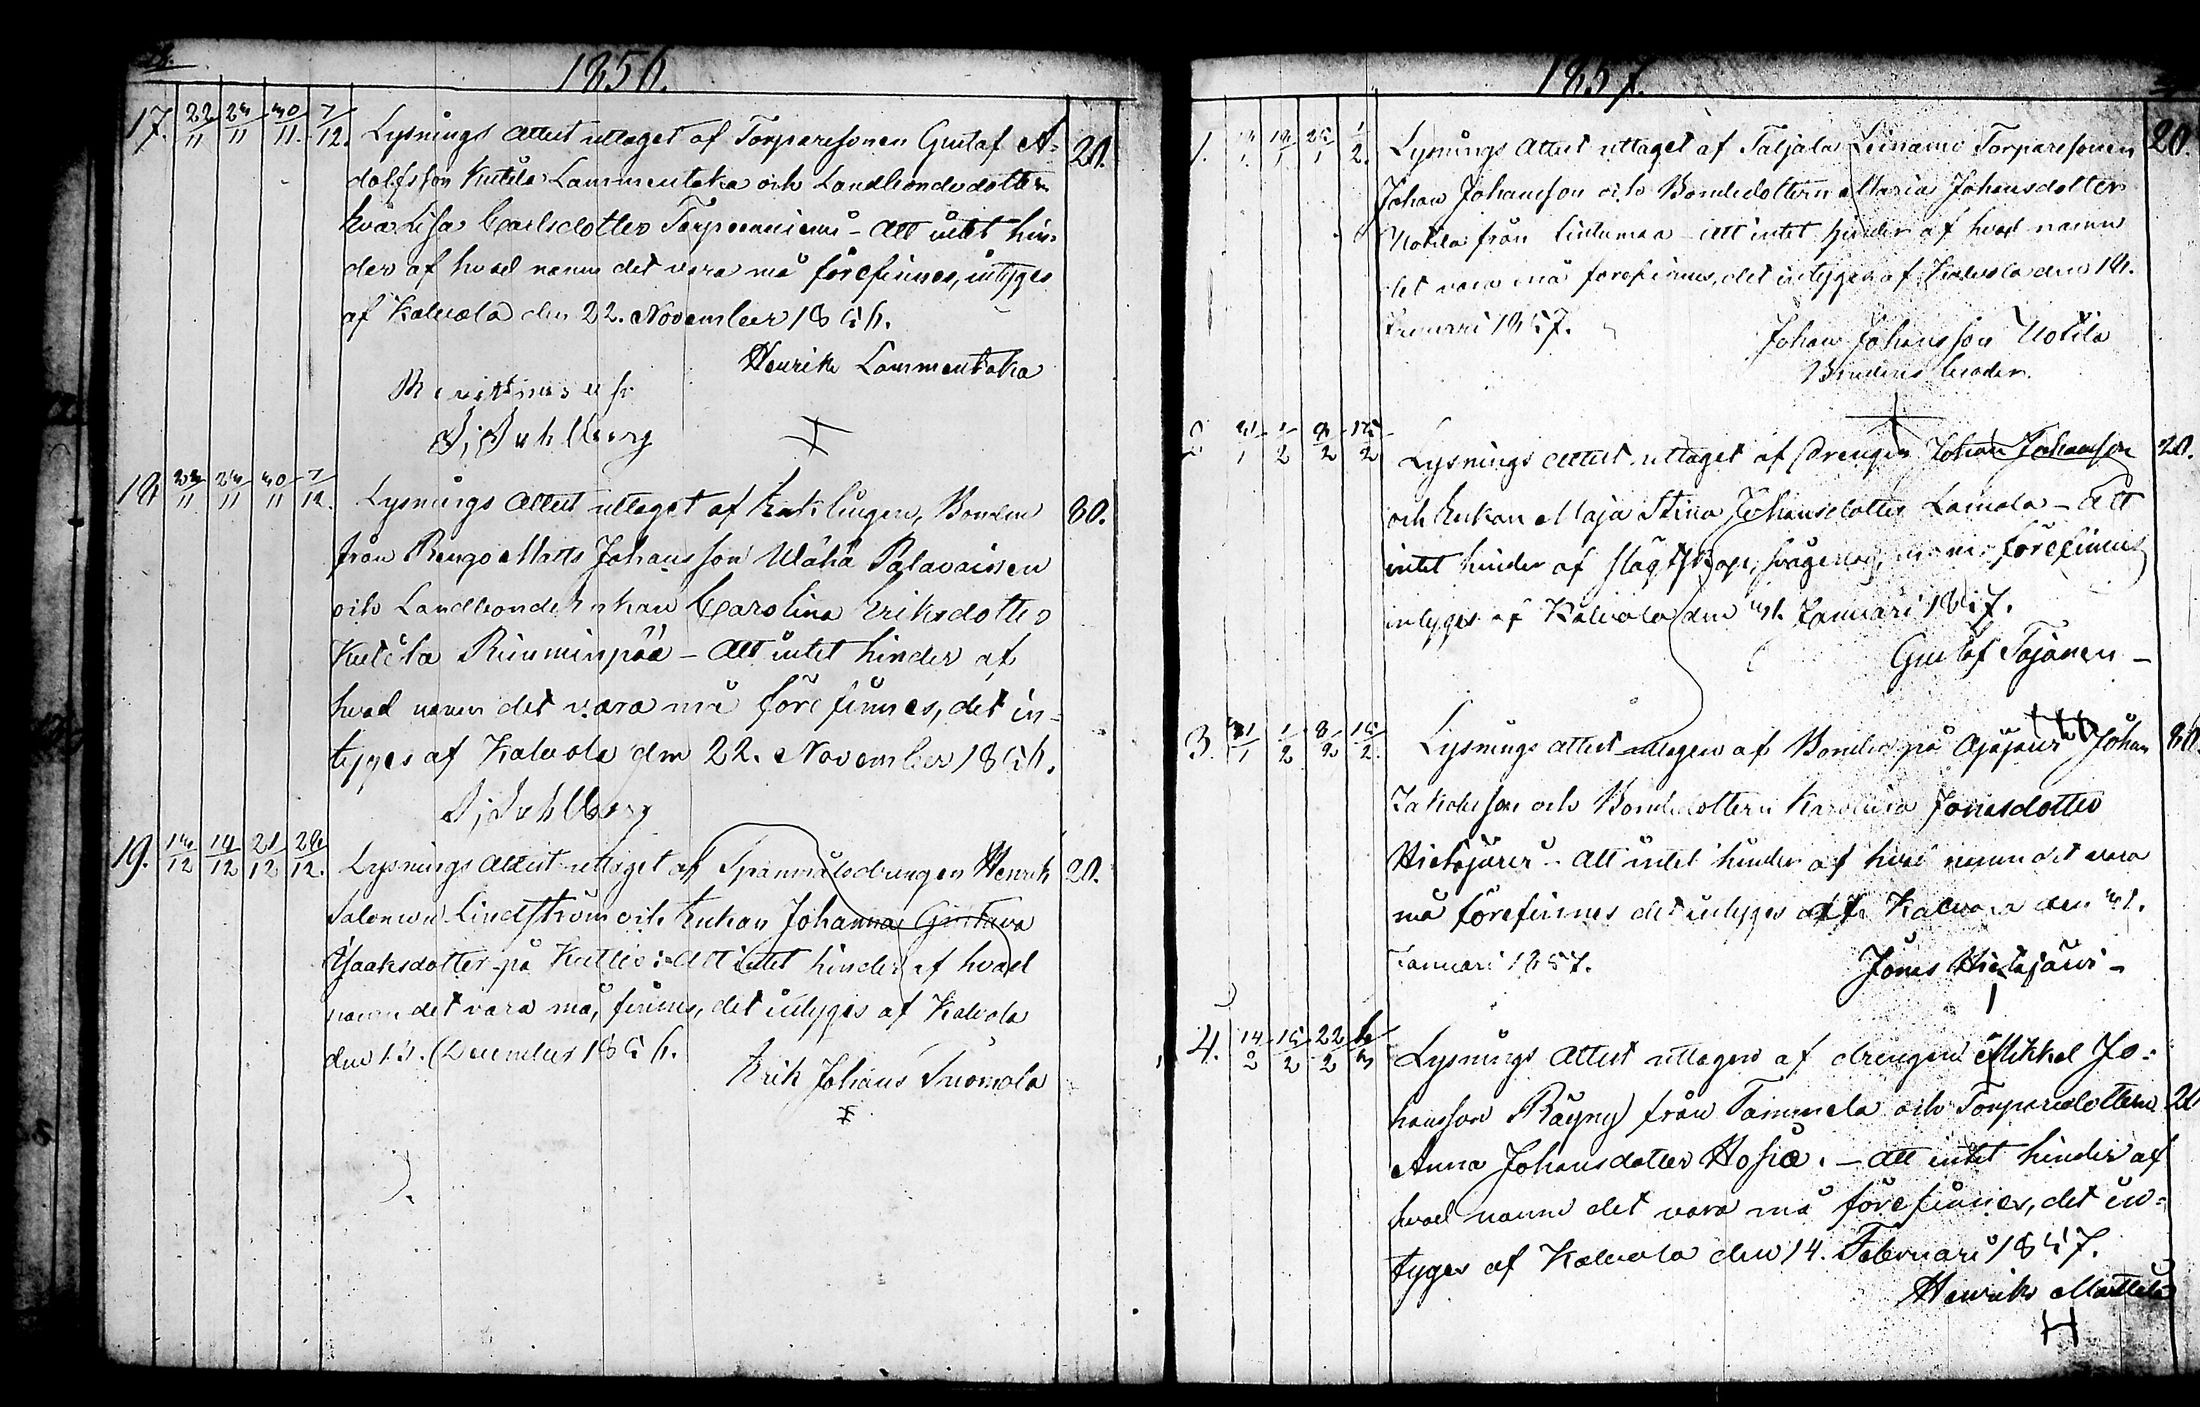 1856.
17. 22/11 23/11 30/11. 7/12. Lysnings Attest uttaget af Torparesonen Gustaf A= 20.
dolfsson Kutila Lammentaka och Landbondedottern
Eva Lisa Carlsdotter Torpanniemi – Att intet hin=
der af hvad namn det vara må förefinnes, intyges
af Kalvola den 22. November 1856.
Henrik Lammentaka
S. J. Dahlberg
18 22/11 23/11 30/11 7/12. Lysnings Attest uttaget af Enklingen, Bonden 80.
från Rengo Matts Johansson Wähä Palavaisen
och Landbondeenkan Carolina Eriksdotter
Kutila Riuminpää – Att intet hinder af
hvad namn det vara må förefinnes, det in=
tyges af Kalvola den 22. November 1856.
S. J. Dahlberg
19. 13/12 14/12 21/12 28/12. Lysnings Attest uttaget af Spanmålsdrengen Henrik 20.
Salomon Lindström och Enkan Johanna Gustava
Isaaksdotter på Kutila: Att intet hinder af hvad
namn det vara må, finnes, det intyges af Kalvola
den 13. December 1856.
Erik Johans Suomola
1857.
1. 18/1 25/1 1/2. Lysnings Attest uttaget af Taljala Leinamo Torparesonen 20.
Johan Johansson och Bondedottern Maria Johansdotter
Uotila från Lintumaa – Att intet hinder af hvad namn
det vara må förefinnes, det intyges af Kalvola den 18.
Januari 1857.
Johan Johansson Uotila
Brudens broder.
2 31/1 1/2 8/2 15/2 Lysnings Attest uttaget af Drengen Johan Johansson 20.
och Enkan Maja Stina Johansdotter Lamala – Att
intet hinder af slägtskap, svågerlag, förefinnes
intyges af Kalvola den 31. Januari 1857.
Gustaf Tajanen –
3. 31/1 1/2 8/2 15/2. Lysnings Attest uttagen af Bonden på Ajajärvi Johan 80.
Jakobsson och Bondedottern Karolina Jonasdotter
Hietajärvi – Att intet hinder af hvad namn det vara
må förefinnes det intyges af Kalvola den 31.
Januari 1857.
Jonas Hietajärvi –
4. 14/2 15/2 22/2 Lysnings Attest uttagen af drengen Mikkel Jo=
hansson Räyny från Tammela och Torparedottern 20
Anna Johansdotter Hosia. – Att intet hinder af
hvad namn det vara må förefinnes, det in=
tyges af Kalvola den 14. Februari 1857.
Henrik Mattila